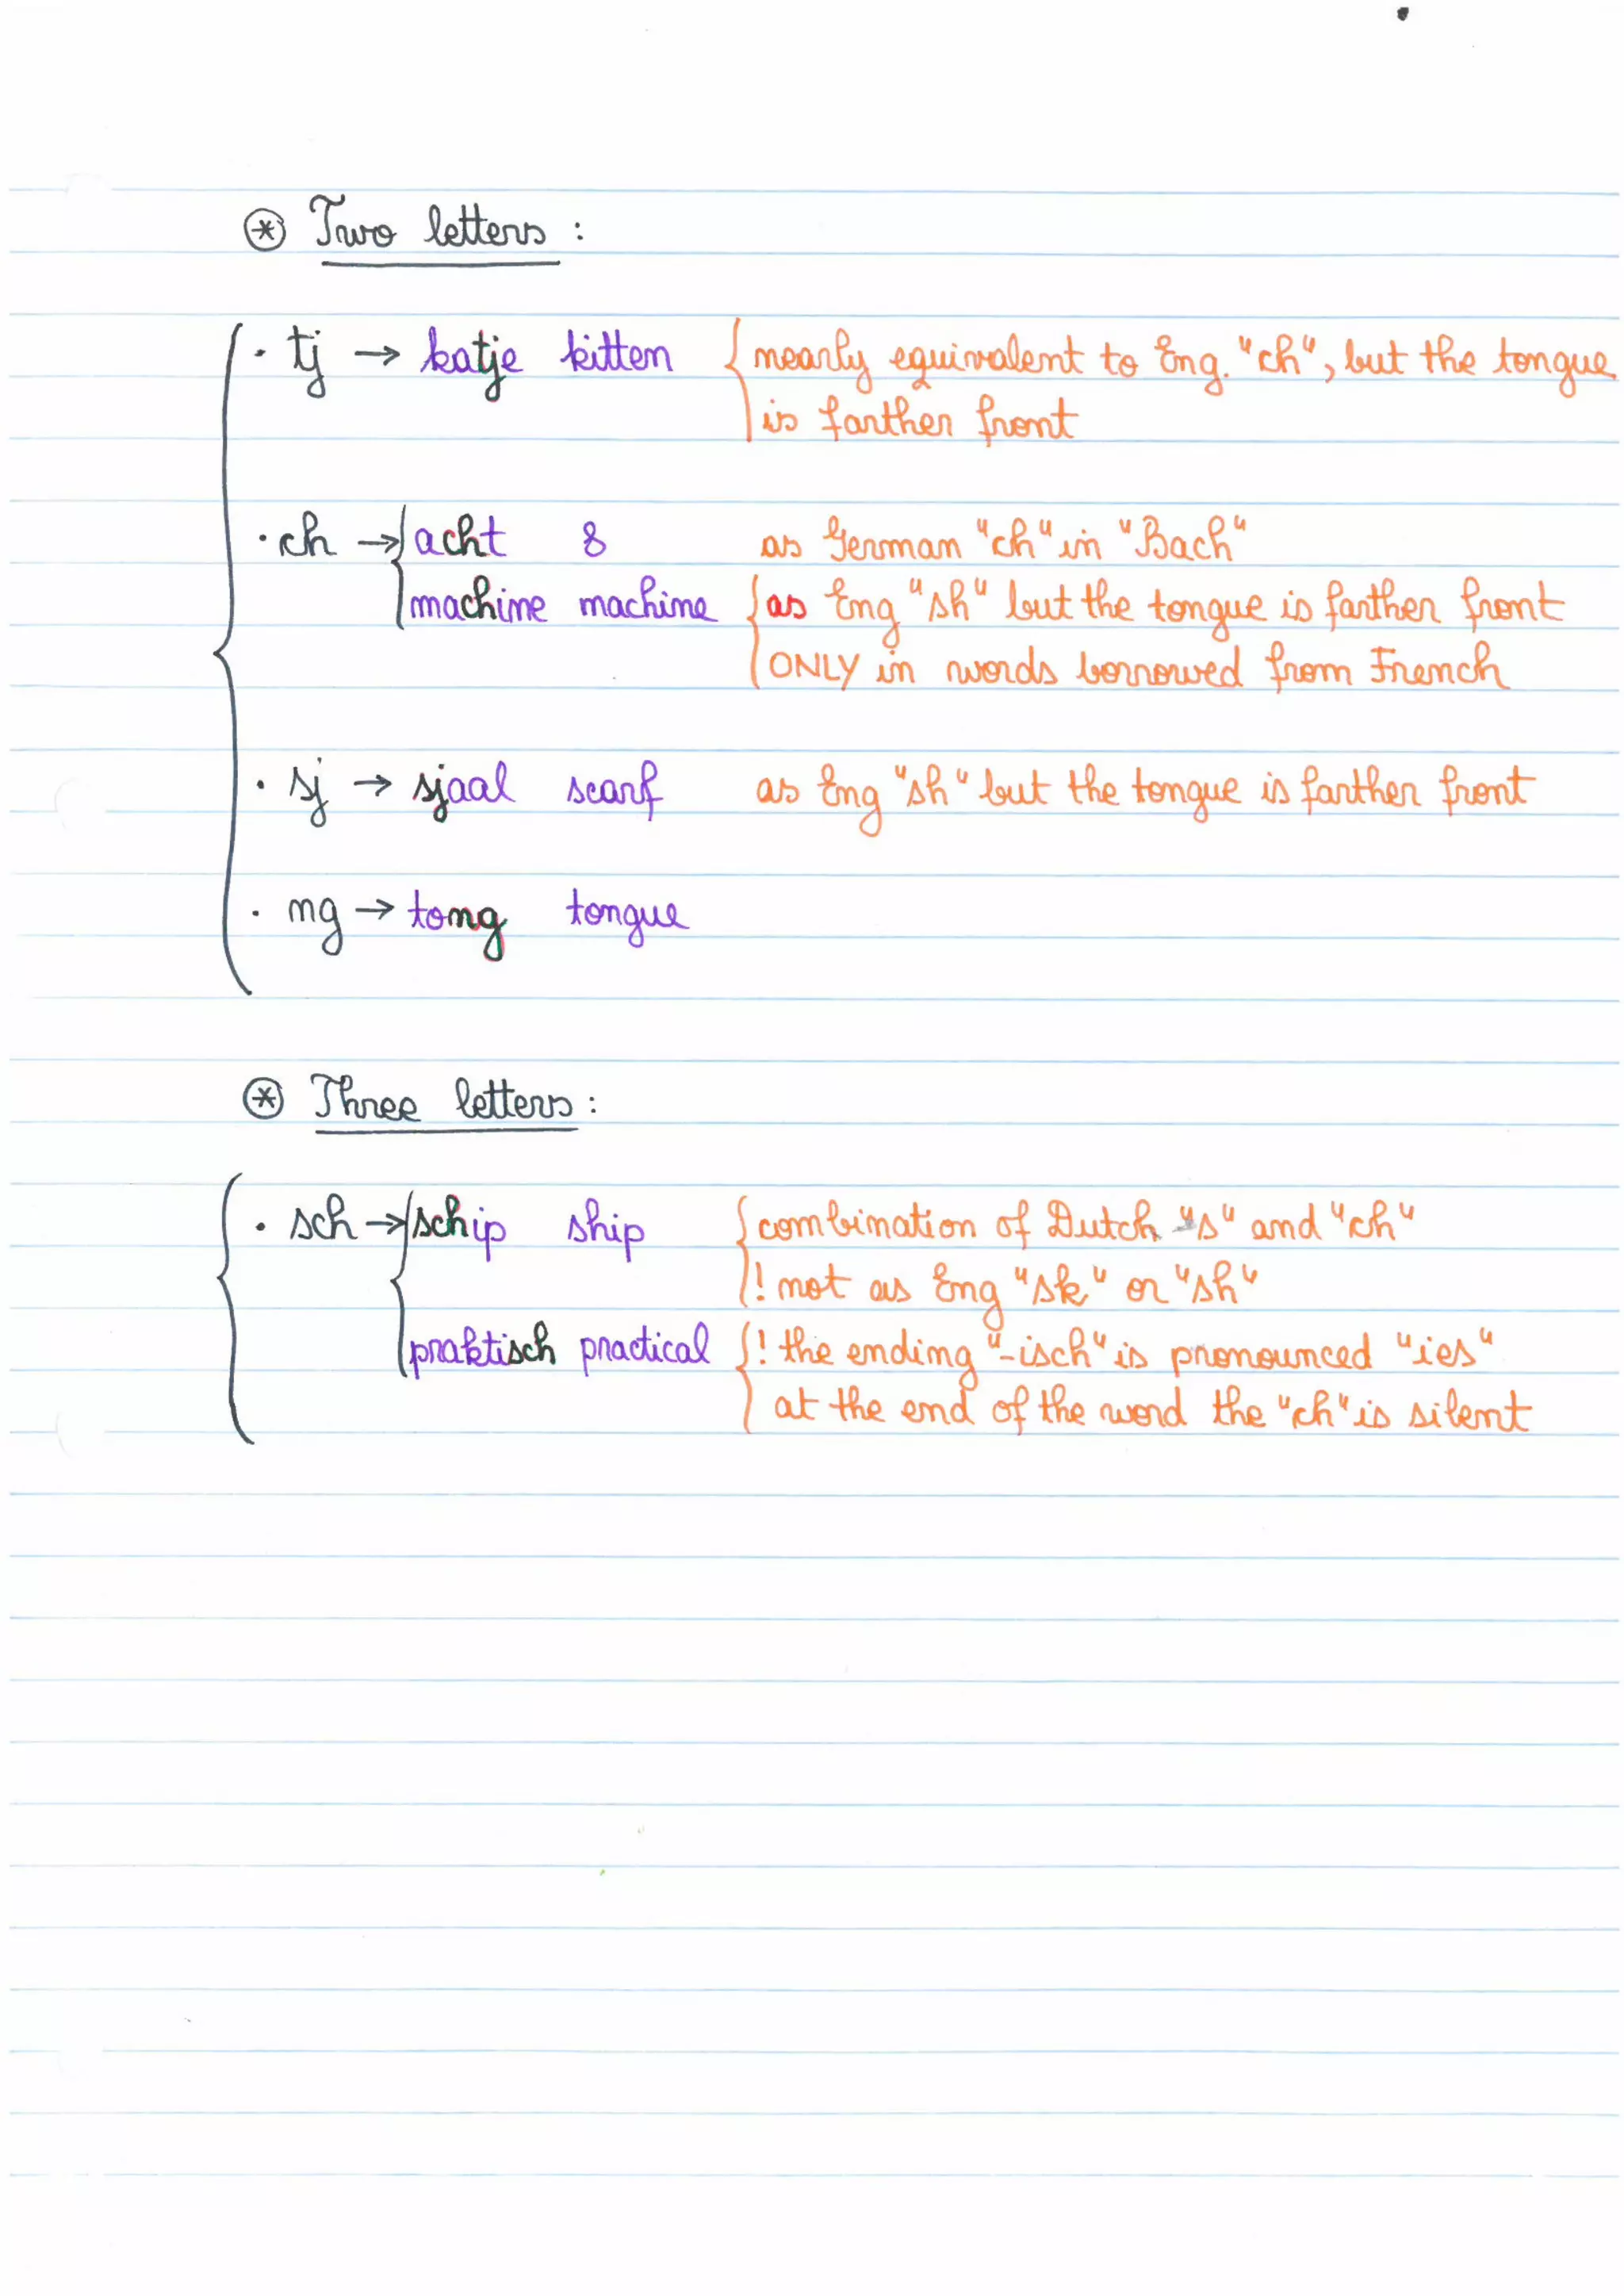 ⊛ Two letters :
· tj → katje kitten nearly equivalent to Eng. "ch", but the tongue
is farther front
· ch → acht 8 as German "ch" in "Bach"
machine machine as Eng "sh" but the tongue is farther front
ONLY in words borrowed from French
· sj → sjaal scarf as Eng "sh" but the tongue is farther front
· ng → tong tongue
⊛ Three letters :
· sch → schip ship combination of Dutch "s" and "ch"
! not as Eng "sk" or "sh"
praktisch practical ! the ending "-isch" is pronounced "ies"
at the end of the word the "ch" is silent